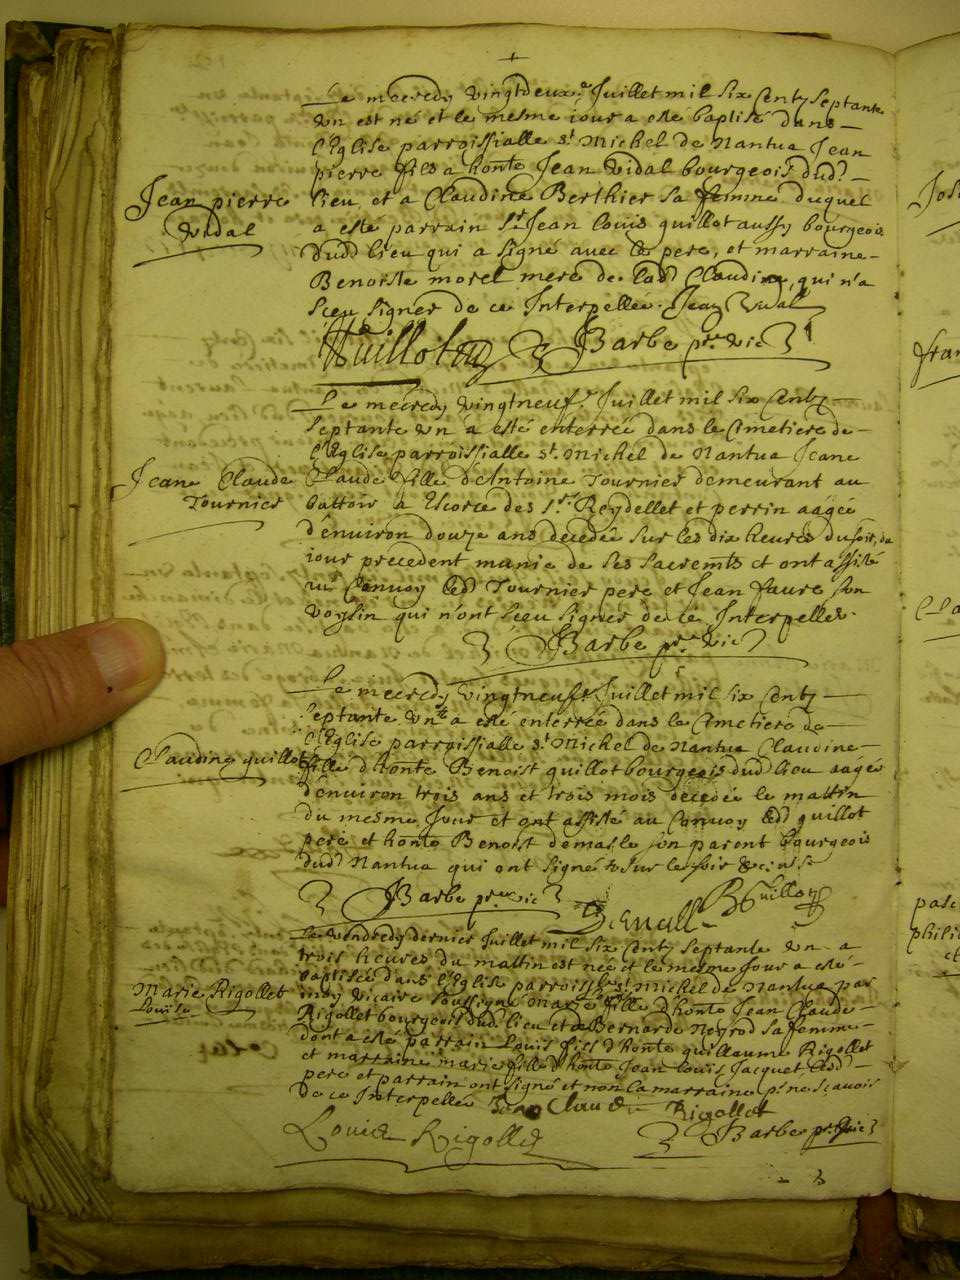 Le mecredy vingtdeux.e Juillet mil six Centz septante
un est né et le mesme iour a esté baptisé dans
l'Eglise parroissialle s.t Michel de Nantua Jean
pierre fils a honte Jean Vidal bourgeois dud.
Jean pierre
Vidal
lieu, et a Claudine Berthier sa femme duquel
a esté parrain S.r Jean Louis quillot aussy bourgeois
dud lieu qui a signé avec le pere, et marraine
Benoiste morel mere de lad Claudine, qui n'a
sceu signer de ce Interpellée. Jean Vidal
Barbe pr. vic
Le mecredy vingtneuf.e Juillet mil six Centz
septante un a esté enterrée dans le Cimetiere de
l'Eglise parroissialle s.t Michel de Nantua Jeane
Jeane Claude
Tournier
Claude fille d'Antoine Tournier demeurant au
battoir a Escorce des S.rs Reydellet et perrin aagée
d'environ douze ans decedée sur les dix heures du soir, du
iour precedent munie de ses sacremts et ont assisté
au Convoy led Tournier pere et Jean faure son
voysin qui n'ont sceu signer de ce Interpellés.
Barbe pr. vic
Le mecredy vingtneuf.e Juillet mil six Centz
septante un a esté enterrée dans le Cimetiere de
l'Eglise parroissialle s.t Michel de Nantua Claudine
Claudine quillot
fille d'honte Benoist quillot bourgeois dud lieu aagée
d'environ trois ans et trois mois decedée le mattin
du mesme Jour et ont assisté au Convoy led quillot
pere et honte Benoist son parent bourgeois
dud Nantua qui ont signé sur le soir
Barbe pr. vic
B Guillot
Le Vendredy dernier Juillet mil six Centz septante un a
trois heures du mattin est née et le mesme Jour a esté
baptisée dans l'Eglise parroiss. s.t Michel de Nantua par
Marie Rigollet
Louise
moy vicaire soussigné Marie fille d'honte Jean Claude
Rigollet bourgeois dud lieu et de Bernarde Neyrod sa femme
dont a esté parrain Louis fils d'honte guillaume Rigollet
et marraine marie fille d'honte Jean Louis Jacquet led
pere et parrain ont signé et non la marraine p.r ne scavoir
de ce Interpellée Jean Claude Rigollet
Louis Rigollet
Barbe pr. vic